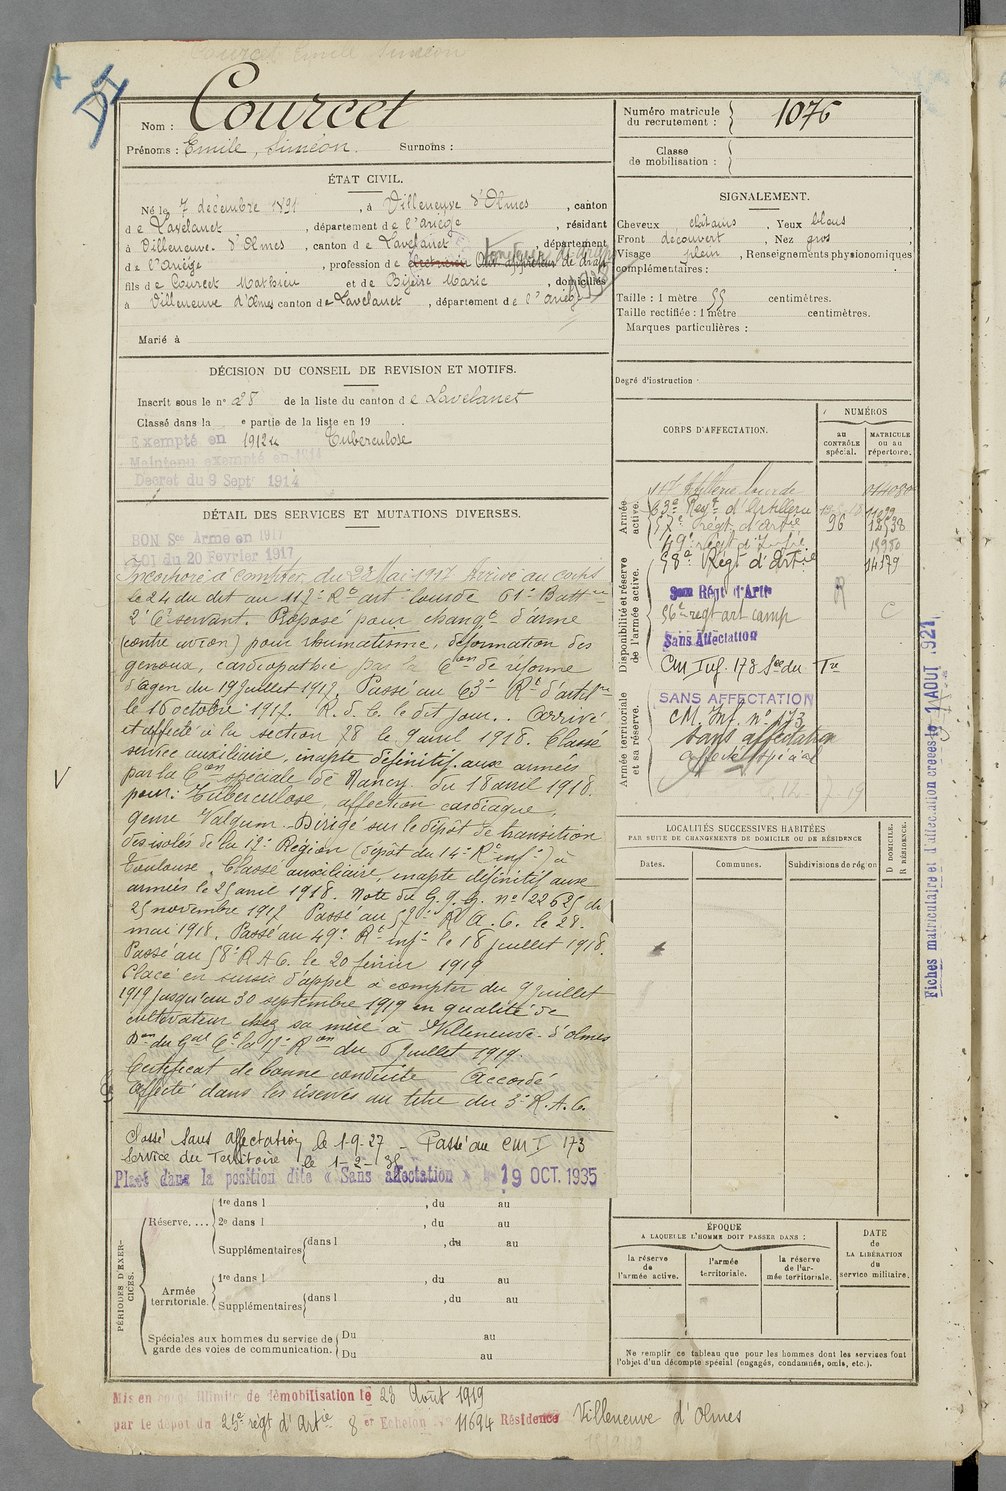 Courcet Emile Siméon
DI
Nom : Courcet
Prénoms : Emile, Siméon. Surnoms :
ÉTAT CIVIL.
Né le 7 décembre 1891, à Villeneuve d'Olmes, canton
de Lavelanet, département de l'Ariège, résidant
à Villeneuve-d'Olmes, canton de Lavelanet, département
de l'Ariège, profession de électricien
fils de Courcet Mathieu et de Marie, domiciliés
à Villeneuve d'Olmes canton de Lavelanet, département de l'Ariège
Marié à
DÉCISION DU CONSEIL DE REVISION ET MOTIFS.
Inscrit sous le n° 25 de la liste du canton de Lavelanet
Classé dans la e partie de la liste en 19
Exempté en 1912 Tuberculose
Maintenu exempté en 1914
Decret du 9 Sept 1914
DÉTAIL DES SERVICES ET MUTATIONS DIVERSES.
BON Sce Armé en 1917
LOI du 20 Fevrier 1917
Incorporé à compter du 22 Mai 1917 Arrivé au corps
le 24 du dit au 117e Rt art lourde 61e Battie
2e Cr servant. Proposé pour changt d'arme
(contre avion) pour rhumatisme, déformation des
genoux, cardiopathie par la Con de réforme
d'Agen du 19 juillet 1917. Passé au 63e Rt d'artie
le 16 octobre 1917. R. d. C. le dit jour. Arrivé
et affecté à la section 28 le 9 avril 1918. Classé
service auxiliaire, inapte définitif aux armées
par la Con spéciale de Nancy du 18 avril 1918.
pour: Tuberculose, affection cardiaque
genu Valgum. Dirigé sur le dépôt de transition
des isolés de la 17e Région (dépôt du 14e Rt infie) à
Toulouse. Classé auxiliaire, inapte définitif aux
armées le 25 avril 1918. Note du G. Q. G. n° 22625 du
25 novembre 1917 Passé au 57e R. A. C. le 28
mai 1918. Passé au 49e Rt infie le 18 juillet 1918.
Passé au 58e R A C. le 20 février 1919
Placé en sursis d'appel à compter du 9 juillet
1919 jusqu'au 30 septembre 1919 en qualité de
cultivateur chez sa mère à Villeneuve-d'Olmes
Don du Gal Ct la 17e Ron du 6 juillet 1919.
Certificat de bonne conduite Accordé
Affecté dans les réserves au titre du 3e R. A. C.
Classé Sans affectation le 1-9-27 - Passé au CM I 173
Service du Territoire le 1-2-
Placé dans la position dite « Sans affectation » le 19 OCT. 1935
PÉRIODES D'EXERCICES.
Réserve....
1re dans l , du au
2e dans l , du au
Supplémentaires dans l , du au
Armée territoriale.
1re dans l , du au
Supplémentaires dans l , du au
Spéciales aux hommes du service de garde des voies de communication.
Du au
Du au
Mis en congé illimité de démobilisation le 23 Août 1919
par le dépôt du régt d'Artie 8 er Echelon No 11694 Résidence Villeneuve d'Olmes
Numéro matricule du recrutement : 1076
Classe de mobilisation :
SIGNALEMENT.
Cheveux châtains, Yeux bleus
Front découvert, Nez gros
Visage plein, Renseignements physionomiques
complémentaires :
Taille : 1 mètre 55 centimètres.
Taille rectifiée : 1 mètre centimètres.
Marques particulières :
Degré d'instruction
CORPS D'AFFECTATION.
NUMÉROS
au CONTRÔLE spécial.
MATRICULE ou au répertoire.
Armée active.
117 Artillerie lourde
63e Regt d'Artillerie
57e régt d'artie 96 12538
49e régt d'Infie
58e Régt d'Artie 14579
Disponibilité et réserve de l'armée active.
Régt d'Artie R
56e regt art camp C
Sans Affectation
CM Inf. 173 Sce du Tre
Armée territoriale et sa réserve.
SANS AFFECTATION
CM. Inf. n° 173
Sans affectation
affecté spécial
LOCALITÉS SUCCESSIVES HABITÉES
PAR SUITE DE CHANGEMENTS DE DOMICILE OU DE RÉSIDENCE
Dates. Communes. Subdivisions de région
D DOMICILE.
R RÉSIDENCE.
ÉPOQUE
A LAQUELLE L'HOMME DOIT PASSER DANS :
la réserve de l'armée active.
l'armée territoriale.
la réserve de l'armée territoriale.
DATE de LA LIBÉRATION du service militaire.
Ne remplir ce tableau que pour les hommes dont les services font
l'objet d'un décompte spécial (engagés, condamnés, omis, etc.).
Fiches matriculaire et d'affectation créées le 1 AOUT 1921